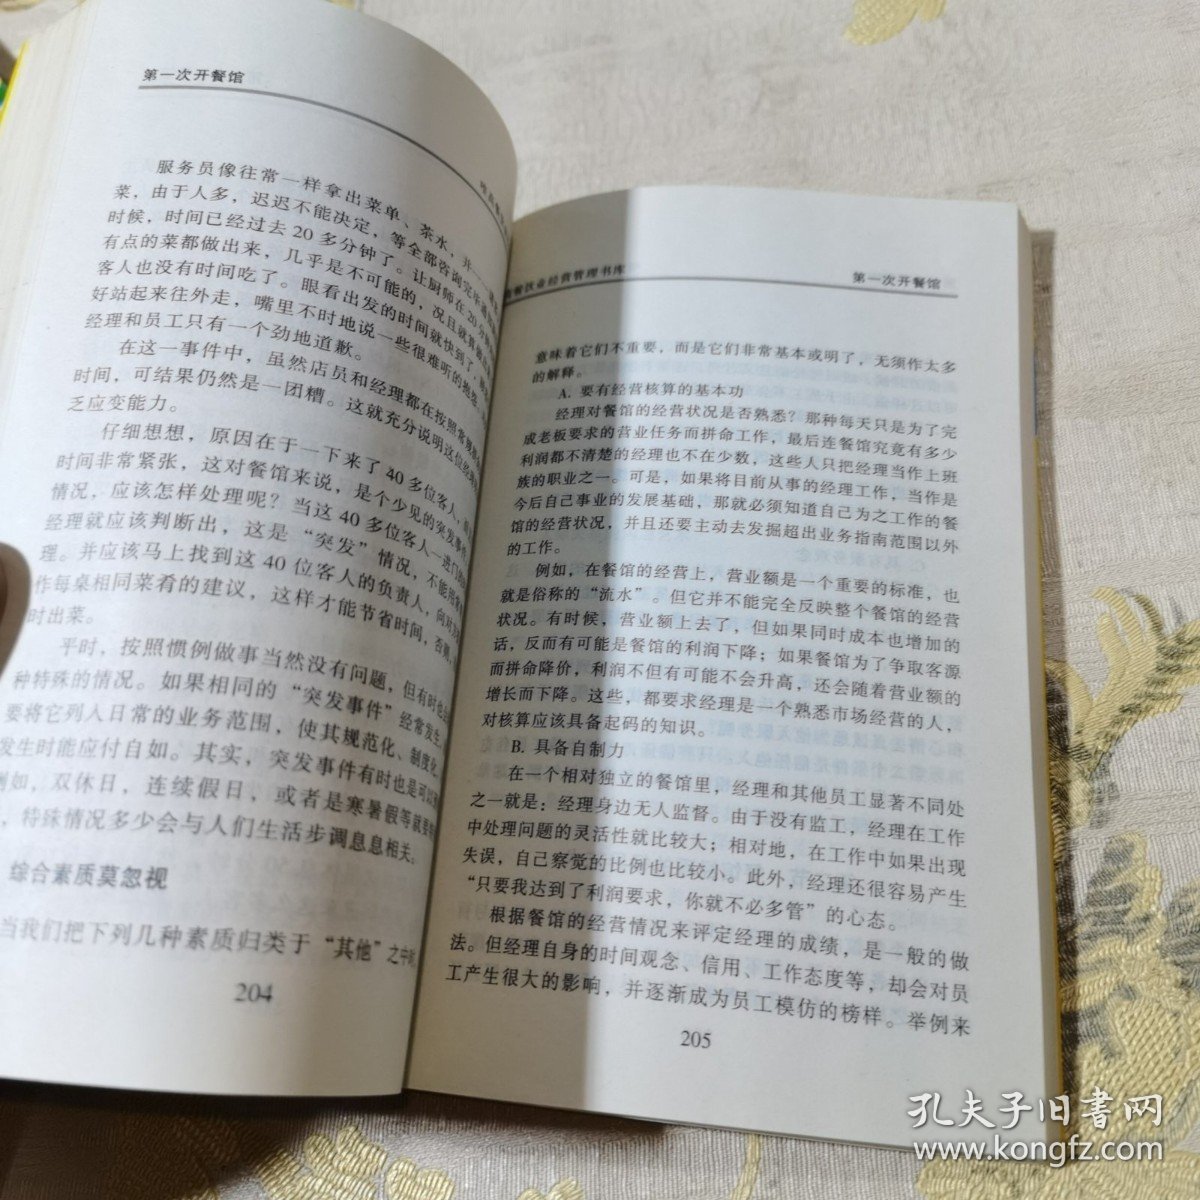 第一次开餐馆
服务员像往常一样拿出菜单、茶水，并一
菜，由于人多，迟迟不能决定，等全部咨询完
时候，时间已经过去20多分钟了。让厨师在20分
有点的菜都做出来，几乎是不可能的，况且就算
客人也没有时间吃了。眼看出发的时间就快到了，
好站起来往外走，嘴里不时地说一些很难听的抱怨，
经理和员工只有一个劲地道歉。
在这一事件中，虽然店员和经理都在按照常规
时间，可结果仍然是一团糟。这就充分说明这位经理
乏应变能力。
仔细想想，原因在于一下来了40多位客人，
时间非常紧张，这对餐馆来说，是个少见的突发事件
情况，应该怎样处理呢？当这40多位客人一进门的
经理就应该判断出，这是“突发”情况，不能用常
理。并应该马上找到这40位客人的负责人，向对方
作每桌相同菜肴的建议，这样才能节省时间，否则，
时出菜。
平时，按照惯例做事当然没有问题，但有时也
种特殊的情况。如果相同的“突发事件”经常发生，
要将它列入日常的业务范围，使其规范化、制度化，
发生时能应付自如。其实，突发事件有时也是可以
例如，双休日，连续假日，或者是寒暑假等就要
，特殊情况多少会与人们生活步调息息相关。
综合素质莫忽视
当我们把下列几种素质归类于“其他”之中时
204
餐饮业经营管理书库
第一次开餐馆
意味着它们不重要，而是它们非常基本或明了，无须作太多
的解释。
A. 要有经营核算的基本功
经理对餐馆的经营状况是否熟悉？那种每天只是为了完
成老板要求的营业任务而拼命工作，最后连餐馆究竟有多少
利润都不清楚的经理也不在少数，这些人只把经理当作上班
族的职业之一。可是，如果将目前从事的经理工作，当作是
今后自己事业的发展基础，那就必须知道自己为之工作的餐
馆的经营状况，并且还要主动去发掘超出业务指南范围以外
的工作。
例如，在餐馆的经营上，营业额是一个重要的标准，也
就是俗称的“流水”。但它并不能完全反映整个餐馆的经营
状况。有时候，营业额上去了，但如果同时成本也增加的
话，反而有可能是餐馆的利润下降；如果餐馆为了争取客源
而拼命降价，利润不但有可能不会升高，还会随着营业额的
增长而下降。这些，都要求经理是一个熟悉市场经营的人，
对核算应该具备起码的知识。
B. 具备自制力
在一个相对独立的餐馆里，经理和其他员工显著不同处
之一就是：经理身边无人监督。由于没有监工，经理在工作
中处理问题的灵活性就比较大；相对地，在工作中如果出现
失误，自己察觉的比例也比较小。此外，经理还很容易产生
“只要我达到了利润要求，你就不必多管”的心态。
根据餐馆的经营情况来评定经理的成绩，是一般的做
法。但经理自身的时间观念、信用、工作态度等，却会对员
工产生很大的影响，并逐渐成为员工模仿的榜样。举例来
205
孔夫子旧书网
www.kongfz.com